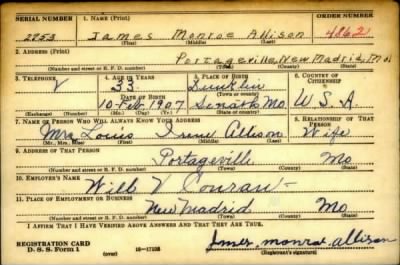 SERIAL NUMBER 1. NAME (Print) ORDER NUMBER
2253 James Monroe Allison 4862
(First) (Middle) (Last)
2. ADDRESS (Print)
Portageville, New Madrid, Mo
(Number and street or R. F. D. number) (Town) (County) (State)
3. TELEPHONE 4. AGE IN YEARS 5. PLACE OF BIRTH 6. COUNTRY OF CITIZENSHIP
33 Dunklin
DATE OF BIRTH
10-Feb-1907 Senath Mo. U. S. A.
(Exchange) (Number) (Mo.) (Day) (Yr.) (State or country)
7. NAME OF PERSON WHO WILL ALWAYS KNOW YOUR ADDRESS 8. RELATIONSHIP OF THAT PERSON
Mrs Louis Irene Allison Wife
(Mr., Mrs., Miss) (First) (Middle) (Last)
9. ADDRESS OF THAT PERSON
Portageville Mo
(Number and street or R. F. D. number) (Town) (County) (State)
10. EMPLOYER'S NAME
Will V Conran
11. PLACE OF EMPLOYMENT OR BUSINESS
New Madrid Mo
(Number and street or R. F. D. number) (Town) (County) (State)
I AFFIRM THAT I HAVE VERIFIED ABOVE ANSWERS AND THAT THEY ARE TRUE.
REGISTRATION CARD
D. S. S. Form 1 (over) 16-17105 (Registrant's signature)
allison